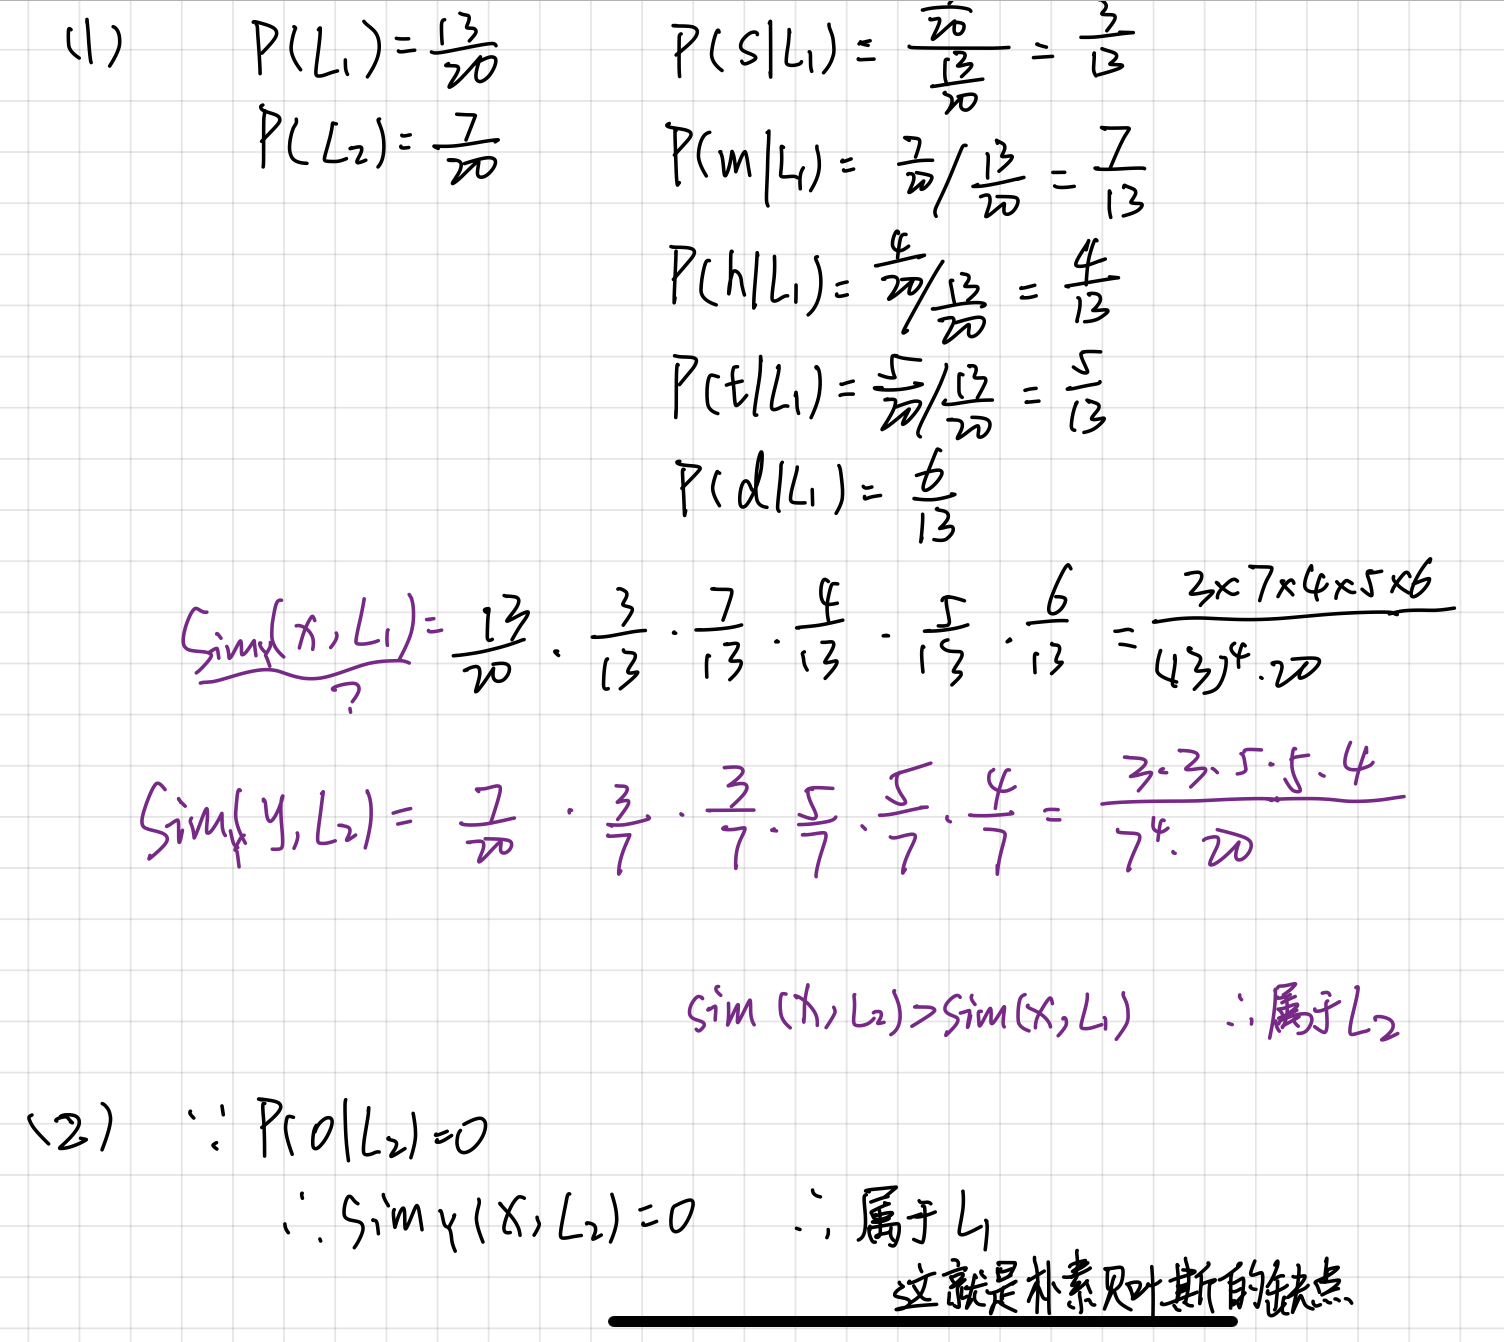 (1) P(L₁)=13/20 P(S|L₁)= /20 / 13/20 = 3/13
P(L₂)=7/20 P(m|L₁)= 7/20 / 13/20 = 7/13
P(h|L₁)= 4/20 / 13/20 = 4/13
P(t|L₁)= 5/20 / 13/20 = 5/13
P(d|L₁)= 6/13
Simy(x,L₁)= 13/20 · 3/13 · 7/13 · 4/13 · 5/13 · 6/13 = 3×7×4×5×6 / (13)⁴·20
?
Simy(y,L₂)= 7/20 · 3/7 · 3/7 · 5/7 · 5/7 · 4/7 = 3·3·5·5·4 / 7⁴·20
sim(x,L₂)>sim(x,L₁) ∴属于L₂
(2) ∵ P(o|L₂)=0
∴ Simy(x,L₂)=0 ∴属于L₁
这就是朴素贝叶斯的缺点